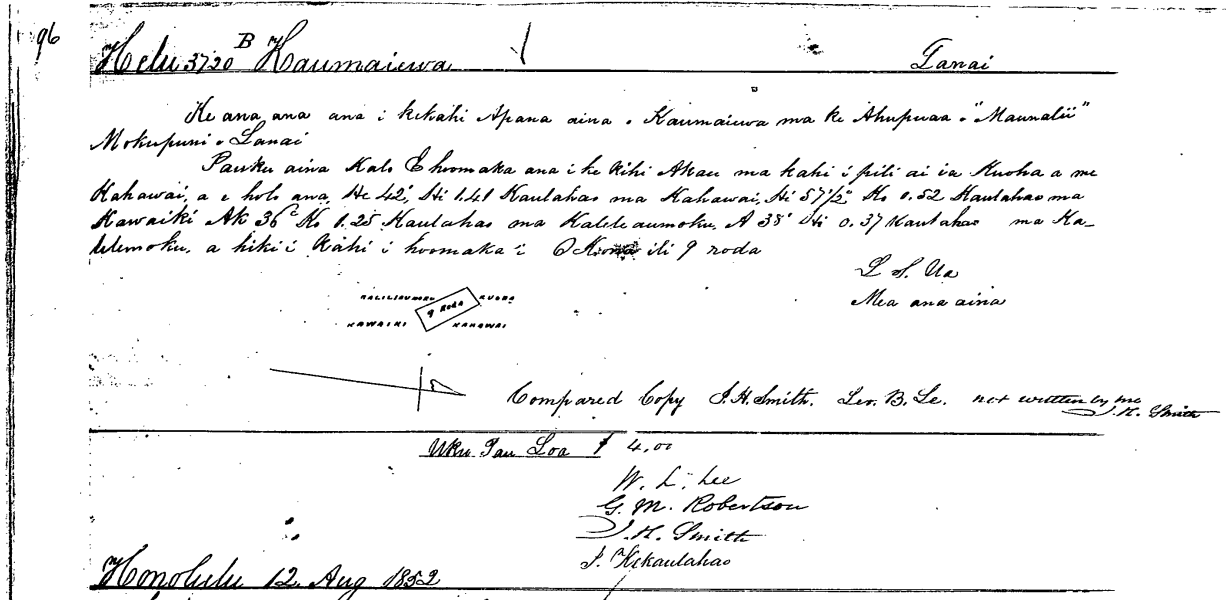 96
Helu 3720 B Kaumaiewa Lanai
Ke ana ana ana i kekahi Apana aina o Kaumaiewa ma ke Ahupuaa o "Maunalii"
Mokupuni o Lanai
Pauku aina Kalo E hoomaka ana i ke Kihi Akau ma kahi i pili ai ia Kuoha a me
Kahawai, a e holo ana, He 42°, Hi 1.41 Kaulahao ma Kahawai, Hi 57½° Ko 0.52 Kaulahao ma
Kawaiki Ak 36° Ko 1.25 Kaulahao ma Kalileaumoku, A 38° Hi 0.37 Kaulahao ma Ka-
lilemoku, a hiki i Kahi i hoomaka i ili 9 roda
L S. Ua
Mea ana aina
KALILIAUMOKU KUOHA
9 RODA
KAWAIKI KAHAWAI
Compared Copy J. H. Smith. Sec. B. Le. not written by me
J. H. Smith
Uku Pau Loa $ 4.00
W. L. Lee
G. M. Robertson
J. H. Smith
J. Kekaulahao
Honolulu 12. Aug 1852